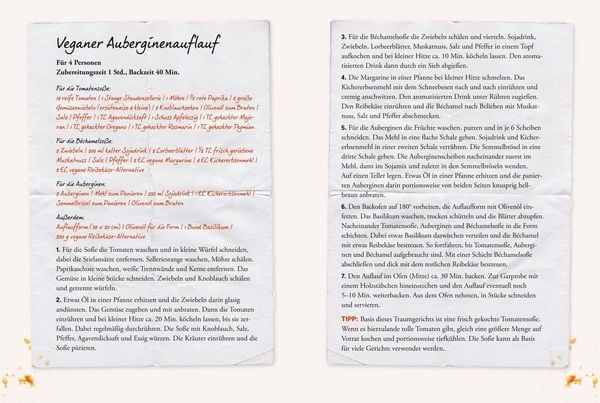 Veganer Auberginenauflauf
Für 4 Personen
Zubereitungszeit 1 Std., Backzeit 40 Min.
Für die Tomatensoße:
10 reife Tomaten | 1 Stange Staudensellerie | 1 Möhre | 1/2 rote Paprika | 2 große
Gemüsezwiebeln (ersatzweise 4 kleine) | 2 Knoblauchzehen | Olivenöl zum Braten |
Salz | Pfeffer | 1 TL Agavendicksaft | 1 Schuss Apfelessig | 1 TL gehackter Majo-
ran | 1 TL gehackter Oregano | 1 TL gehackter Rosmarin | 1 TL gehackter Thymian
Für die Béchamelsoße:
2 Zwiebeln | 500 ml kalter Sojadrink | 2 Lorbeerblätter | 1/2 TL frisch geriebene
Muskatnuss | Salz | Pfeffer | 2 EL vegane Margarine | 2 EL Kichererbsenmehl |
2 EL vegane Reibekäse-Alternative
Für die Auberginen:
2 Auberginen | Mehl zum Panieren | 250 ml Sojadrink | 2 EL Kichererbsenmehl |
Semmelbrösel zum Panieren | Olivenöl zum Braten
Außerdem:
Auflaufform (20 x 30 cm) | Olivenöl für die Form | 1 Bund Basilikum |
200 g vegane Reibekäse-Alternative
1. Für die Soße die Tomaten waschen und in kleine Würfel schneiden,
dabei die Stielansätze entfernen. Selleriestange waschen, Möhre schälen.
Paprikaschote waschen, weiße Trennwände und Kerne entfernen. Das
Gemüse in kleine Stücke schneiden. Zwiebeln und Knoblauch schälen
und getrennt würfeln.
2. Etwas Öl in einer Pfanne erhitzen und die Zwiebeln darin glasig
andünsten. Das Gemüse zugeben und mit anbraten. Dann die Tomaten
einrühren und bei kleiner Hitze ca. 20 Min. köcheln lassen, bis sie zer-
fallen. Dabei regelmäßig durchrühren. Die Soße mit Knoblauch, Salz,
Pfeffer, Agavendicksaft und Essig würzen. Die Kräuter einrühren und die
Soße pürieren.
3. Für die Béchamelsoße die Zwiebeln schälen und vierteln. Sojadrink,
Zwiebeln, Lorbeerblätter, Muskatnuss, Salz und Pfeffer in einem Topf
aufkochen und bei kleiner Hitze ca. 10 Min. köcheln lassen. Den aroma-
tisierten Drink dann durch ein Sieb abgießen.
4. Die Margarine in einer Pfanne bei kleiner Hitze schmelzen. Das
Kichererbsenmehl mit dem Schneebesen nach und nach einrühren und
cremig anschwitzen. Den aromatisierten Drink unter Rühren zugießen.
Den Reibekäse einrühren und die Béchamel nach Belieben mit Muskat-
nuss, Salz und Pfeffer abschmecken.
5. Für die Auberginen die Früchte waschen, putzen und in je 6 Scheiben
schneiden. Das Mehl in eine flache Schale geben. Sojadrink und Kicher-
erbsenmehl in einer zweiten Schale verrühren. Die Semmelbrösel in eine
dritte Schale geben. Die Auberginenscheiben nacheinander zuerst im
Mehl, dann im Sojamix und zuletzt in den Semmelbröseln wenden.
Auf einen Teller legen. Etwas Öl in einer Pfanne erhitzen und die panier-
ten Auberginen darin portionsweise von beiden Seiten knusprig hell-
braun anbraten.
6. Den Backofen auf 180° vorheizen, die Auflaufform mit Olivenöl ein-
fetten. Das Basilikum waschen, trocken schütteln und die Blätter abzupfen.
Nacheinander Tomatensoße, Auberginen und Béchamelsoße in die Form
schichten. Dabei etwas Basilikum dazwischen verteilen und die Béchamel
mit etwas Reibekäse bestreuen. So fortfahren, bis Tomatensoße, Aubergi-
nen und Béchamel aufgebraucht sind. Mit einer Schicht Béchamelsoße
abschließen und dick mit dem restlichen Reibekäse bestreuen.
7. Den Auflauf im Ofen (Mitte) ca. 30 Min. backen. Zur Garprobe mit
einem Holzstäbchen hineinstechen und den Auflauf eventuell noch
5–10 Min. weiterbacken. Aus dem Ofen nehmen, in Stücke schneiden
und servieren.
TIPP: Basis dieses Traumgerichts ist eine frisch gekochte Tomatensoße.
Wenn es hierzulande tolle Tomaten gibt, gleich eine größere Menge auf
Vorrat kochen und portionsweise tiefkühlen. Die Soße kann als Basis
für viele Gerichte verwendet werden.